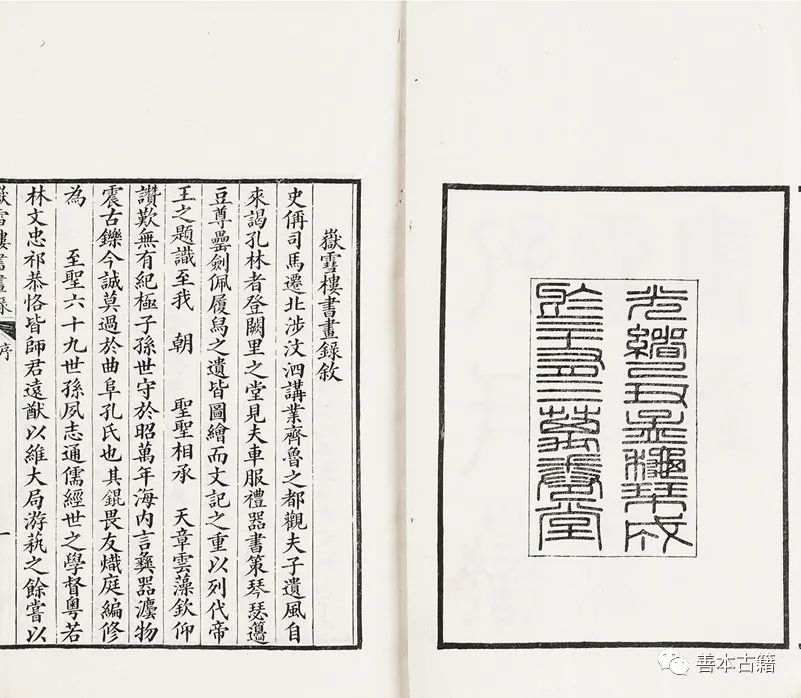 光緒己丑孟龝栞成
於三十有三萬卷堂
嶽雪樓書畫錄敘
史偁司馬遷北涉汶泗講業齊魯之都觀夫子遺風自
來謁孔林者登闕里之堂見夫車服禮器書策琴瑟籩
豆尊罍劍佩履舄之遺皆圖繪而文記之重以列代帝
王之題識至我　朝　聖聖相承　天章雲藻欽仰
讚歎無有紀極子孫世守於昭萬年海內言彝器灋物
震古鑠今誠莫過於曲阜孔氏也其錕畏友熾庭編修
為　至聖六十九世孫夙志通儒經世之學督粵若
林文忠祁恭恪皆師君遠猷以維大局游蓺之餘嘗以
嶽雪樓書畫錄　序　一
善本古籍